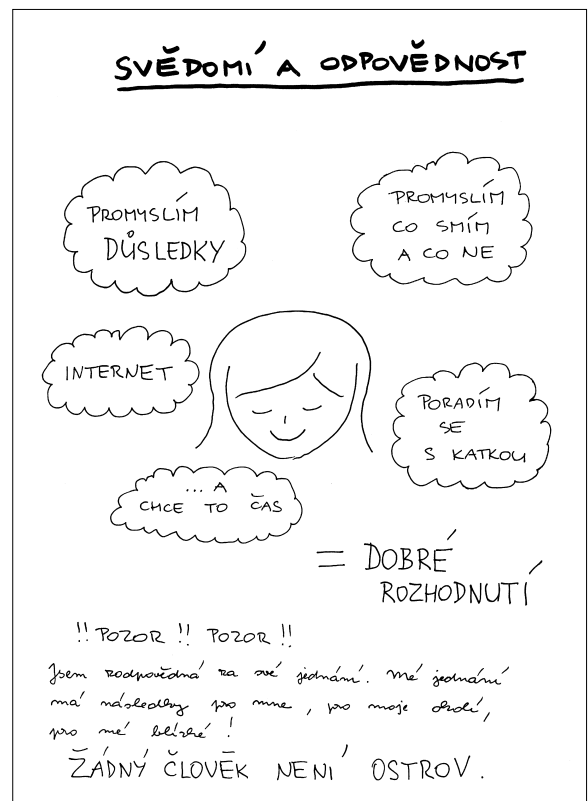 SVĚDOMÍ A ODPOVĚDNOST
PROMYSLÍM
DŮSLEDKY
PROMYSLÍM
CO SMÍM
A CO NE
INTERNET
PORADÍM
SE
S KATKOU
... A
CHCE TO ČAS
= DOBRÉ
ROZHODNUTÍ
!! POZOR !! POZOR !!
Jsem zodpovědná za své jednání. Mé jednání
má následky pro mne, pro moje okolí,
pro mé blízké!
ŽÁDNÝ ČLOVĚK NENÍ OSTROV.